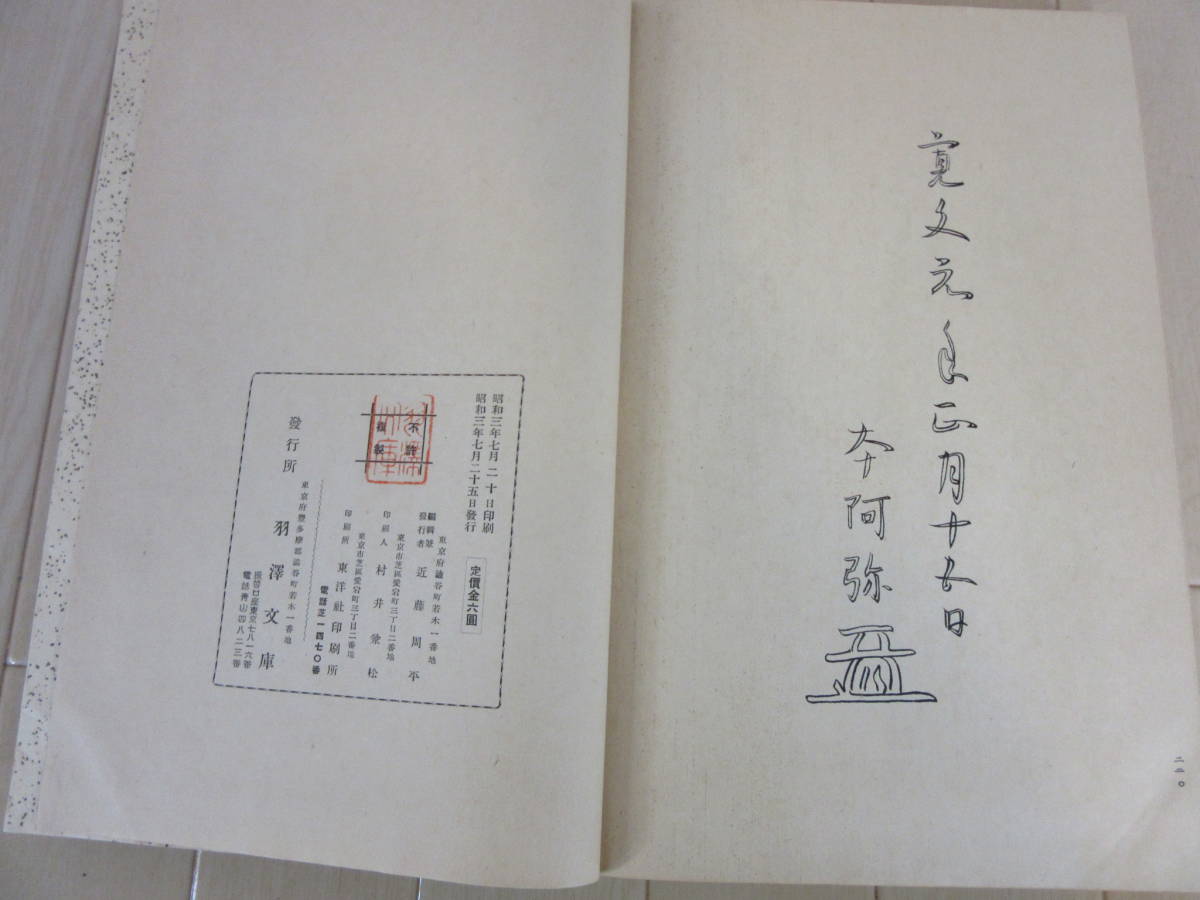 寛文元年正月十五日
本阿弥
二二〇
昭和三年七月二十日印刷
昭和三年七月二十五日發行
定價金六圓
東京府澁谷町若木一番地
編輯兼
發行者
近藤周平
東京市芝區愛宕町三丁目二番地
印刷人
村井兼松
東京市芝區愛宕町三丁目二番地
印刷所
東洋社印刷所
電話芝一四七〇番
不許
複製
發行所
東京府豐多摩郡澁谷町若木一番地
羽澤文庫
振替口座東京七八一六番
電話青山四八二三番